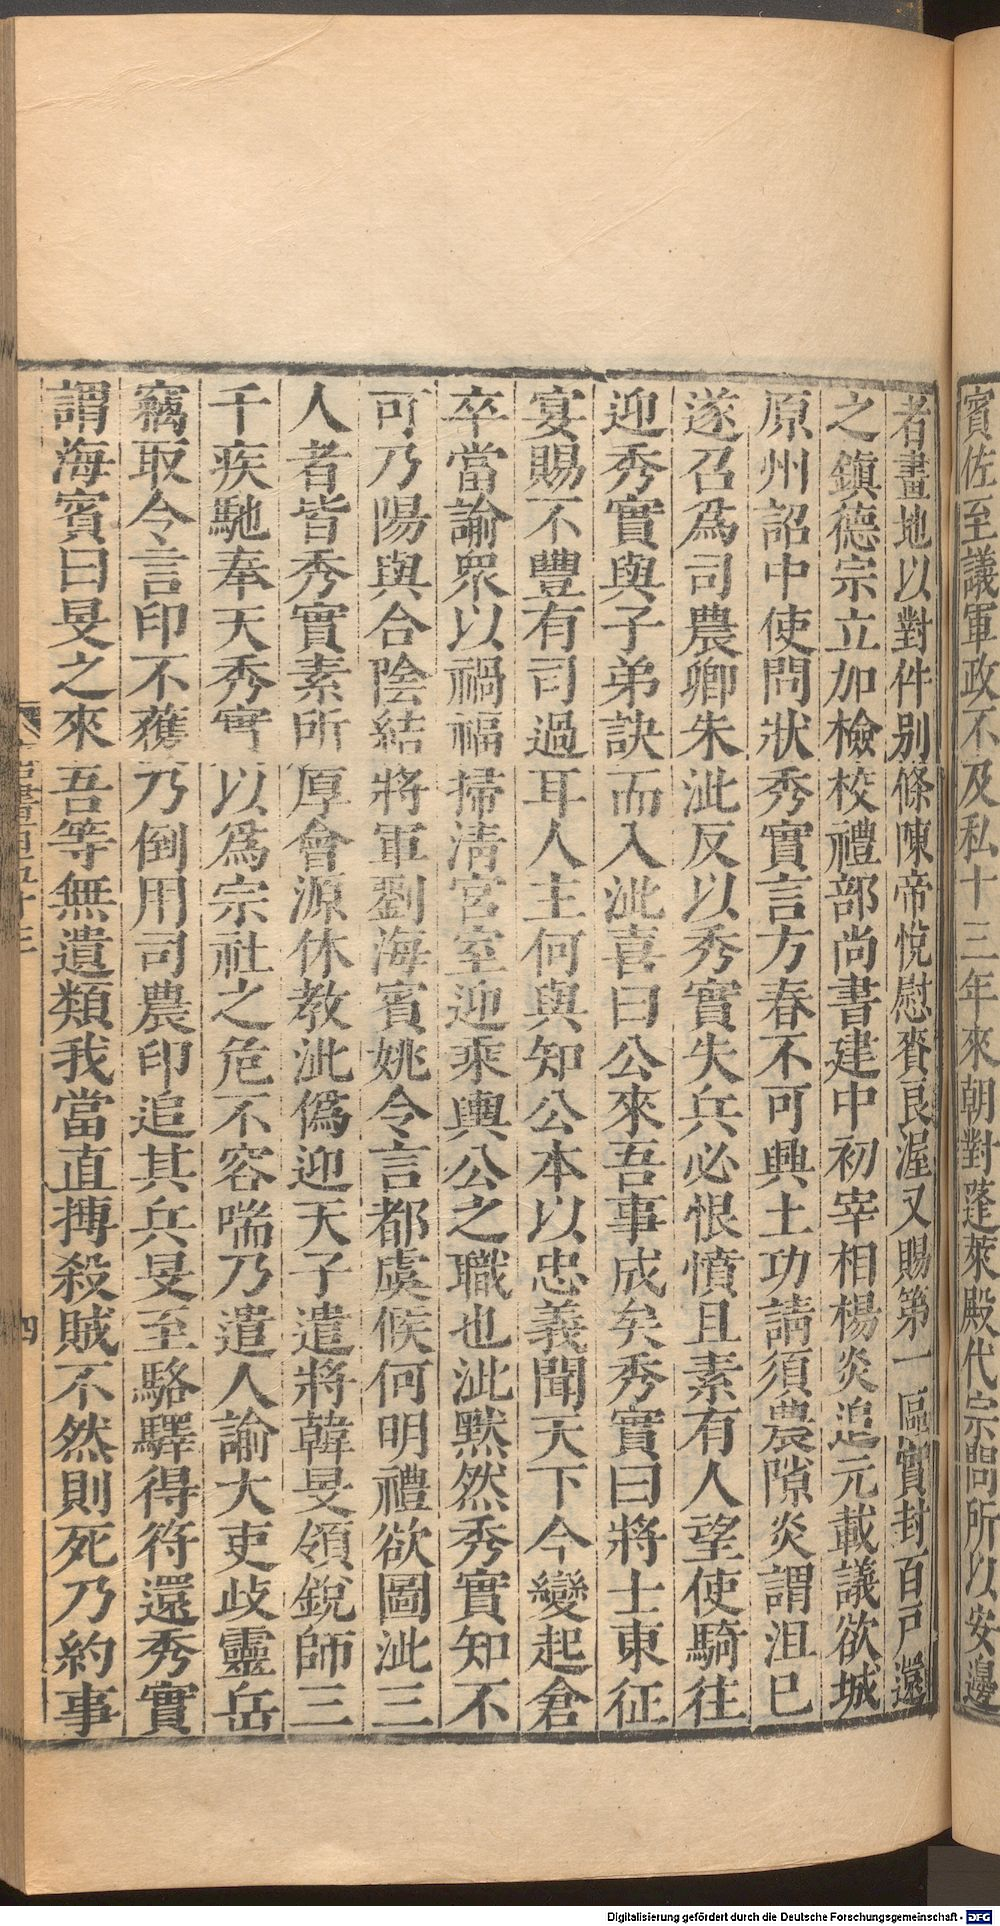 賓佐至議軍政不及私十三年來朝對蓬萊殿代宗問所以安邊
者畫地以對件别條陳帝悅慰賚良渥又賜第一區實封百戶還
之鎮德宗立加檢校禮部尚書建中初宰相楊炎追元載議欲城
原州詔中使問狀秀實言方春不可興土功請須農隙炎謂沮已
遂召爲司農卿朱泚反以秀實失兵必恨憤且素有人望使騎往
迎秀實與子弟訣而入泚喜曰公來吾事成矣秀實曰將士東征
宴賜不豐有司過耳人主何與知公本以忠義聞天下今變起倉
卒當諭衆以禍福掃淸宮室迎乘輿公之職也泚默然秀實知不
可乃陽與合陰結將軍劉海賓姚令言都虞候何明禮欲圖泚三
人者皆秀實素所厚會源休教泚僞迎天子遣將韓旻領銳師三
千疾馳奉天秀實以爲宗社之危不容喘乃遣人諭大吏歧靈岳
竊取令言印不獲乃倒用司農印追其兵旻至駱驛得符還秀實
謂海賓曰旻之來吾等無遺類我當直搏殺賊不然則死乃約事
四
Digitalisierung gefördert durch die Deutsche Forschungsgemeinschaft - DFG